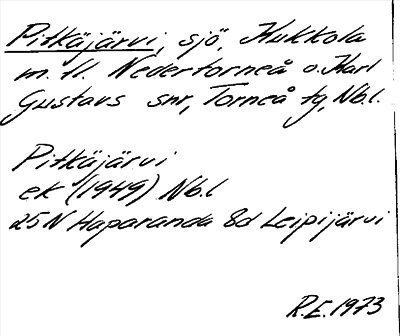 Pitkäjärvi, sjö, Kukkola
m. fl. Nedertorneå o. Karl
Gustavs snr, Torneå tg, Nb.l.
Pitkäjärvi
ek (1949) Nb.l
25N Haparanda 8d Leipijärvi
R.E. 1973